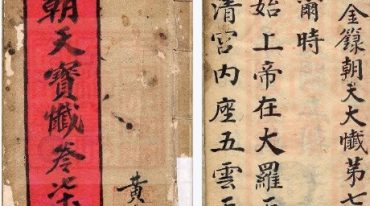 朝天寶懺
黃
金籙朝天大懺第七
爾時
始上帝在大羅
清宮内座五雲